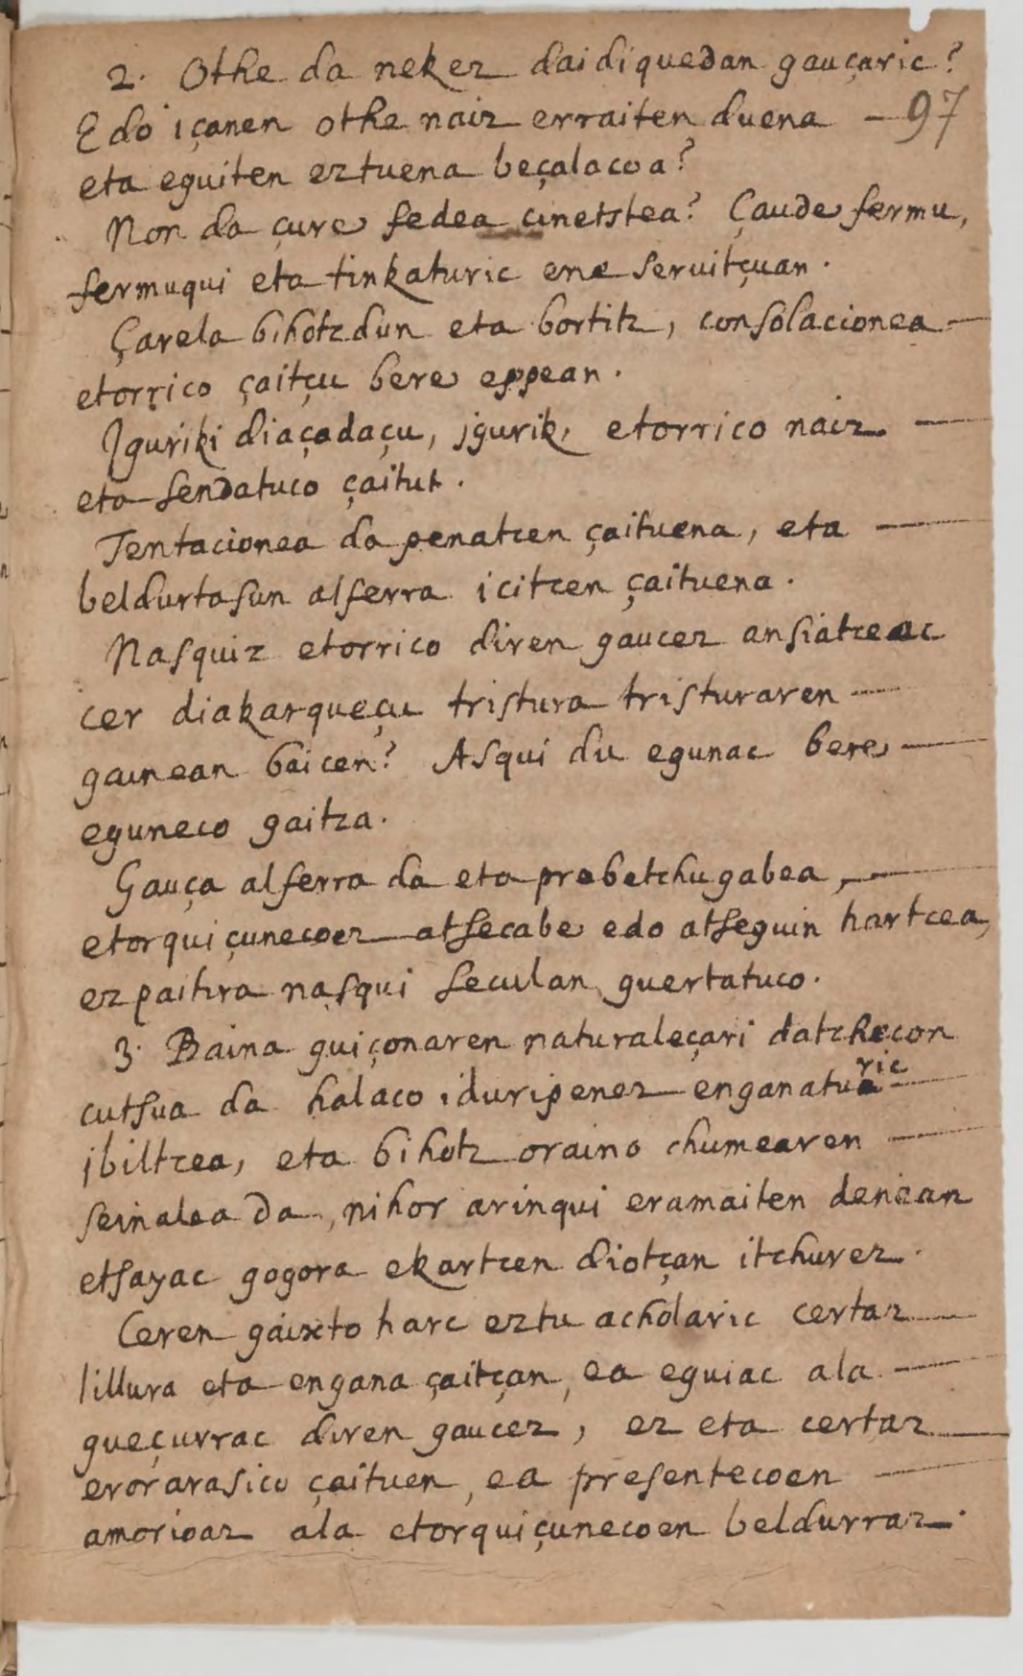 2. Othe da nekez daidiquedan gauçaric?
97
Edo içanen othe naiz erraiten duena —
eta eguiten eztuena beçalacoa?
Non da çure fedea cinetstea? Çaude fermu,
fermuqui eta tinkaturic ene ſeruitçuan.
Çarela bihotzdun eta bortitz, conſolacionea —
etorrico çaitçu bere eppean.
Iguriki diaçadaçu, jgurik, etorrico naiz —
eta ſendatuco çaitut.
Tentacionea da penatcen çaituena, eta —
beldurtaſun alferra icitcen çaituena.
Naſquiz etorrico diren gaucez anſiatceac
cer diakarqueçu triſtura triſturaren —
gainean baicen? Aſqui du egunac bere —
eguneco gaitza.
Gauça alferra da eta probetchugabea, —
etorquiçunecoez atſecabe edo atſeguin hartcea,
ezpaitira naſqui ſeculan guertatuco.
3. Baina guiçonaren naturaleçari datchecon
cutſua da halaco iduripenez enganaturic —
jbiltcea, eta bihotz oraino chumearen —
ſeinalea da, nihor arinqui eramaiten denean
etſayac gogora ekartcen diotçan itchurez.
Ceren gaixto harc eztu acholaric certaz —
lillura eta engana çaitçan, ea eguiac ala —
gueçurrac diren gaucez, ez eta certaz —
erorarasico çaituen, ea preſentecoen —
amorioaz ala etorquiçunecoen beldurraz.